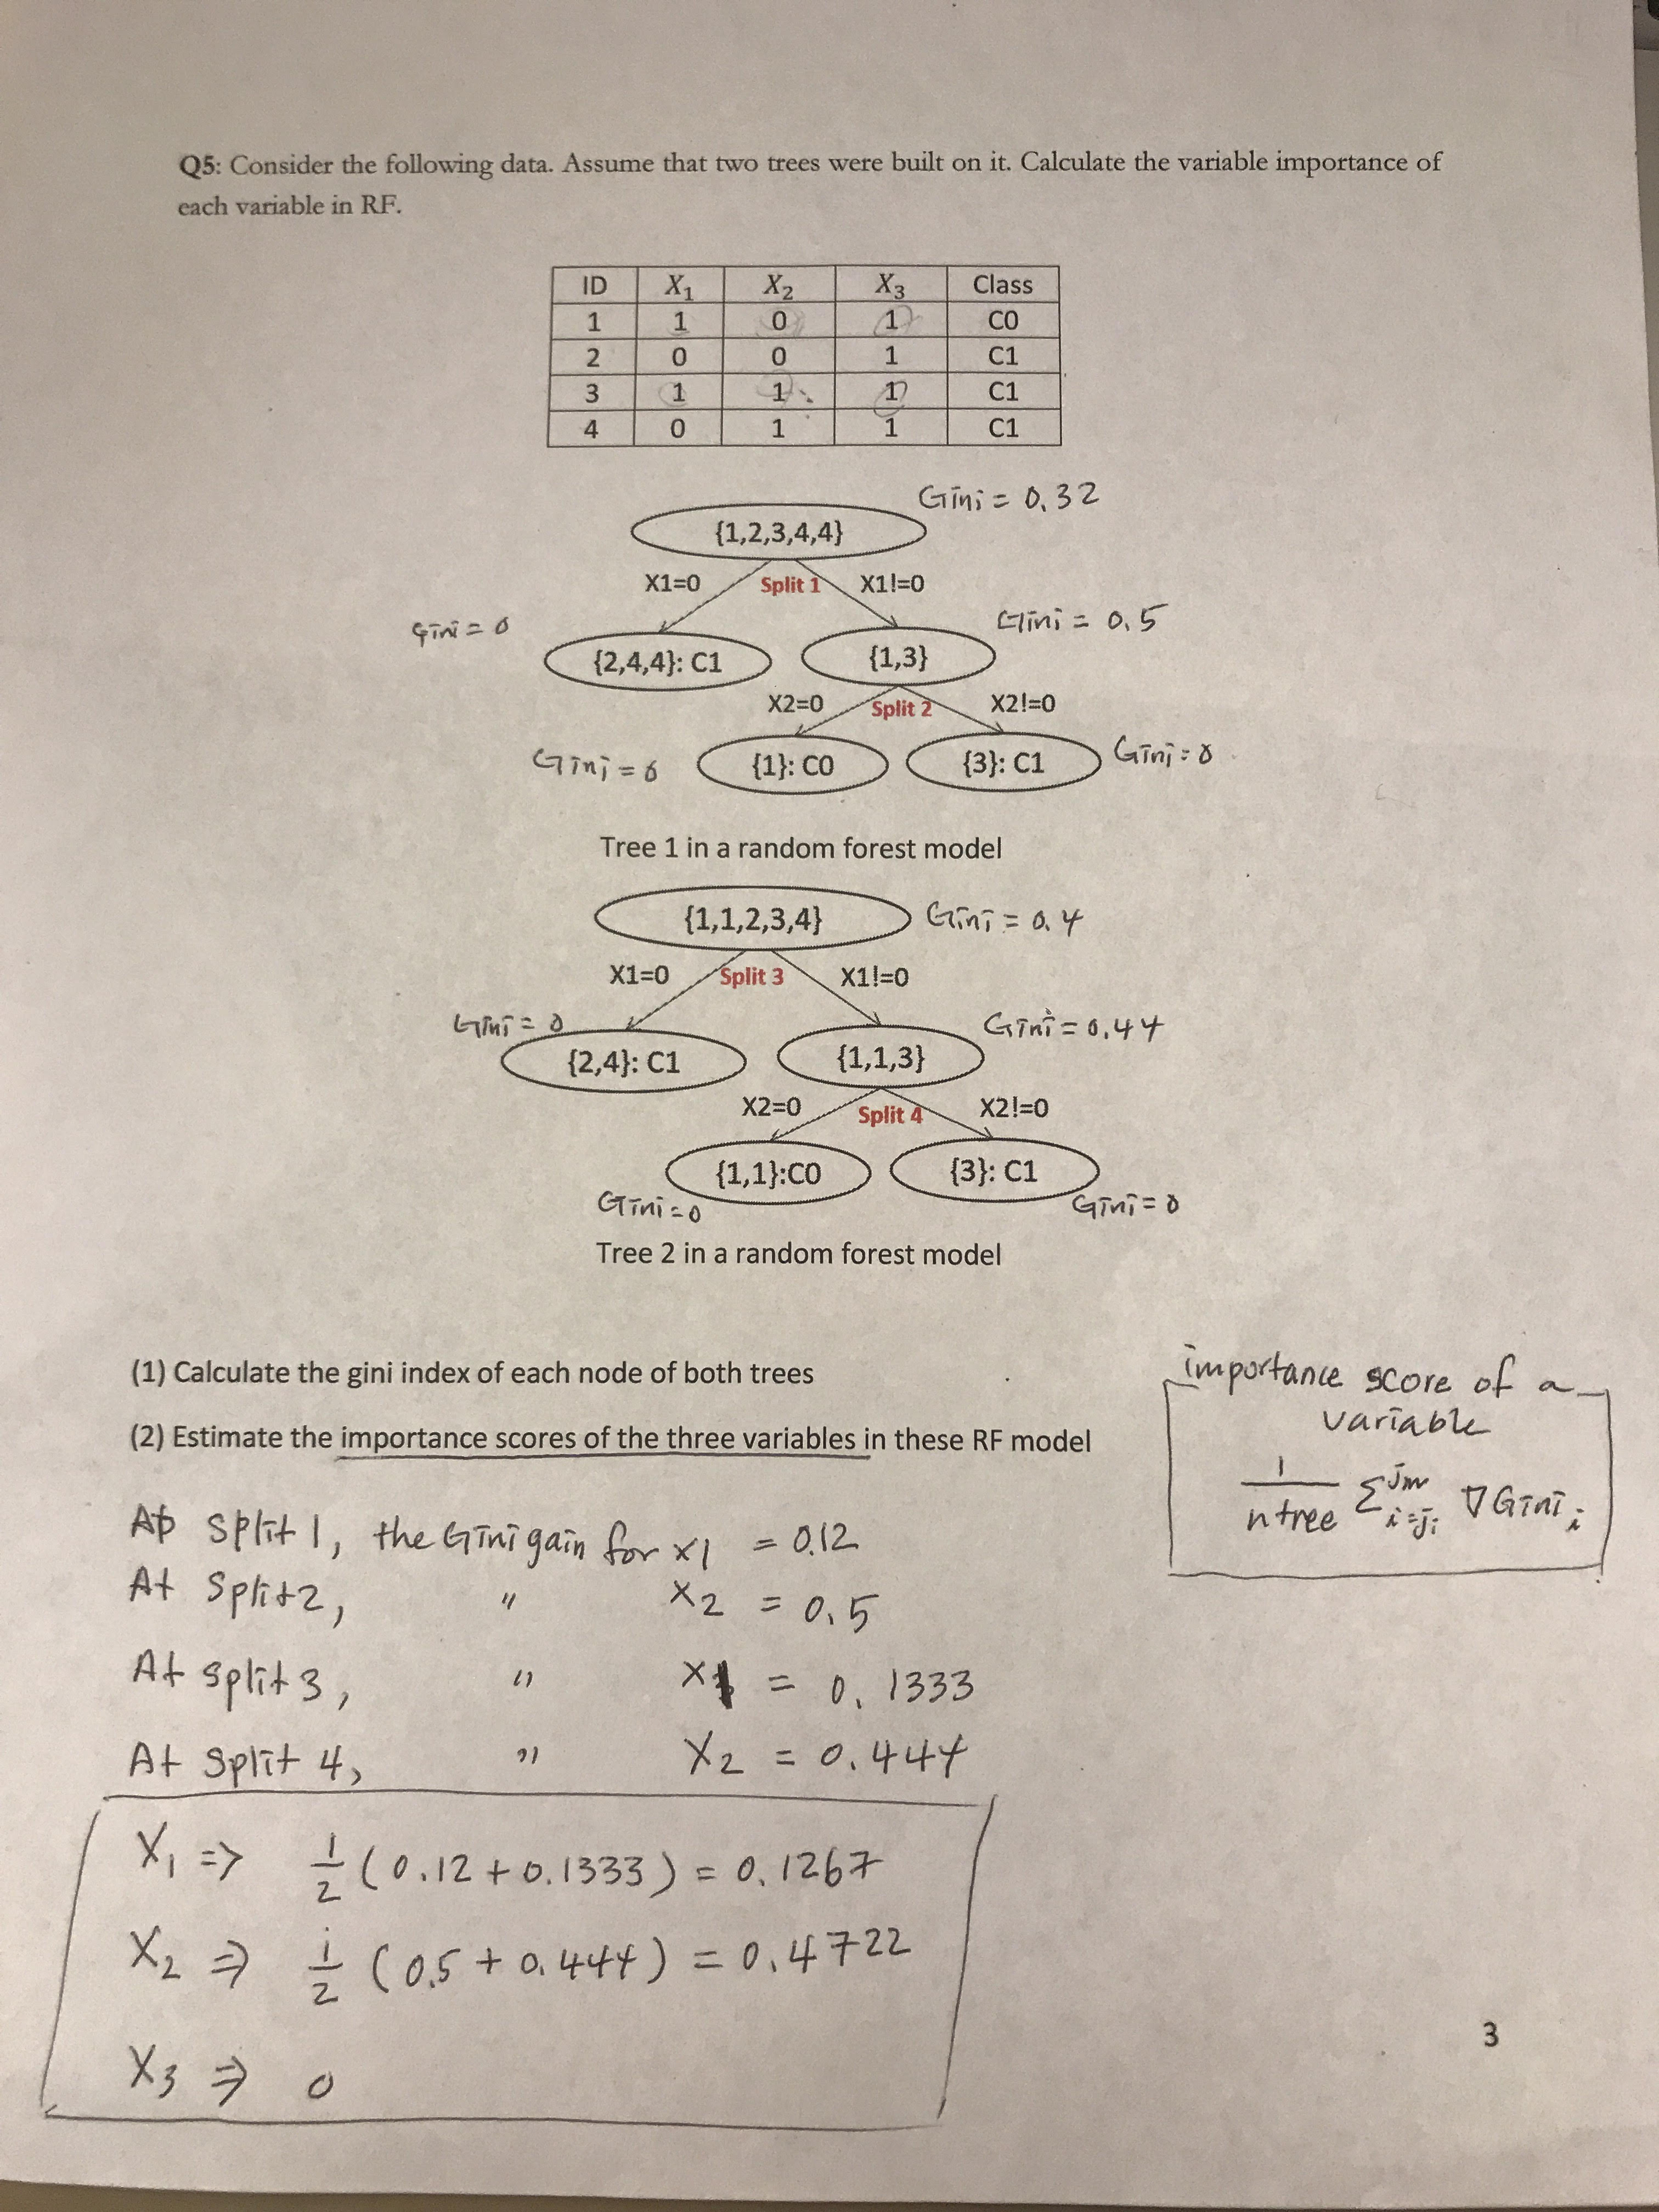 Q5: Consider the following data. Assume that two trees were built on it. Calculate the variable importance of
each variable in RF.
ID X₁ X₂ X₃ Class
1 1 0 1 C0
2 0 0 1 C1
3 1 1 1 C1
4 0 1 1 C1
Gini = 0.32
{1,2,3,4,4}
X1=0 Split 1 X1!=0
Gini = 0
Gini = 0.5
{2,4,4}: C1 {1,3}
X2=0 Split 2 X2!=0
Gini = 0 {1}: C0 {3}: C1 Gini = 0
Tree 1 in a random forest model
{1,1,2,3,4} Gini = 0.4
X1=0 Split 3 X1!=0
Gini = 0 Gini = 0.44
{2,4}: C1 {1,1,3}
X2=0 Split 4 X2!=0
{1,1}:C0 {3}: C1
Gini = 0 Gini = 0
Tree 2 in a random forest model
(1) Calculate the gini index of each node of both trees
(2) Estimate the importance scores of the three variables in these RF model
importance score of a
variable
1/ntree Σ ∇Gini i
At split 1, the Gini gain for x1 = 0.12
At Split 2, " X2 = 0.5
At split 3, " X1 = 0.1333
At split 4, " X2 = 0.444
X₁ => 1/2 (0.12 + 0.1333) = 0.1267
X₂ => 1/2 (0.5 + 0.444) = 0.4722
X₃ => 0
3